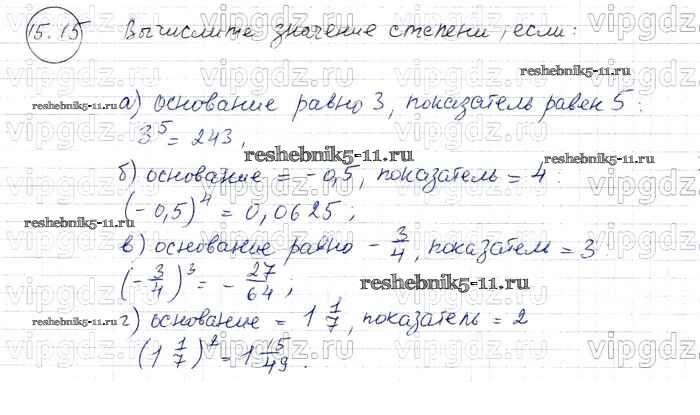 15.15 Вычислите значение степени, если:
reshebnik5-11.ru
а) основание равно 3, показатель равен 5:
reshebnik5-11.ru
3⁵ = 243,
reshebnik5-11.ru
reshebnik5-11.ru
б) основание = -0,5, показатель = 4:
(-0,5)⁴ = 0,0625;
reshebnik5-11.ru
в) основание равно - 3/4, показател = 3
(- 3/4)³ = - 27/64;
reshebnik5-11.ru
г) основание = 1 1/7, показатель = 2
reshebnik5-11.ru
(1 1/7)² = 1 15/49.
vipgdz